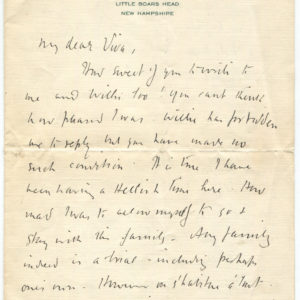 LITTLE BOARS HEAD
NEW HAMPSHIRE
My dear Viva,
How sweet of you to write to
me and Willie too! You can't think
how pleased I was. Willie has forbidden
me to reply but you have made no
such condition. It is true I have
been having a Hellish time here. How
mad I was to allow myself to go &
stay with this family. Any family
indeed is a trial - including perhaps
one's own. However on